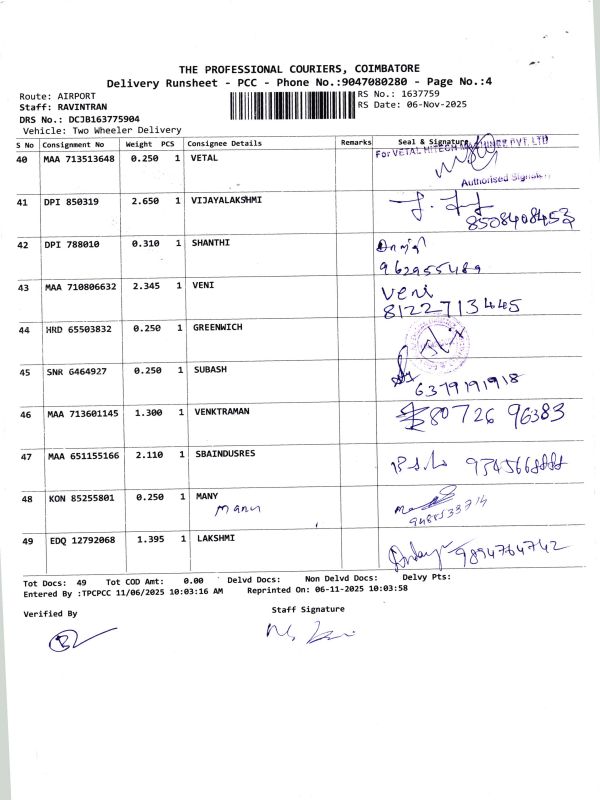 THE PROFESSIONAL COURIERS, COIMBATORE
Delivery Runsheet - PCC - Phone No.:9047080280 - Page No.:4
Route: AIRPORT
Staff: RAVINTRAN
DRS No.: DCJB163775904
Vehicle: Two Wheeler Delivery
RS No.: 1637759
RS Date: 06-Nov-2025
S No Consignment No Weight PCS Consignee Details Remarks Seal & Signature
40 MAA 713513648 0.250 1 VETAL
For VETAL HITECH MACHINES PVT. LTD
Authorised Signatory
41 DPI 850319 2.650 1 VIJAYALAKSHMI
8508408453
42 DPI 788010 0.310 1 SHANTHI
43 MAA 710806632 2.345 1 VENI
Veni
8122713445
44 HRD 65503832 0.250 1 GREENWICH
45 SNR G464927 0.250 1 SUBASH
6379191918
46 MAA 713601145 1.300 1 VENKTRAMAN
80726 96383
47 MAA 651155166 2.110 1 SBAINDUSRES
48 KON 85255801 0.250 1 MANY
Manu
49 EDQ 12792068 1.395 1 LAKSHMI
9894764742
Tot Docs: 49 Tot COD Amt: 0.00 Delvd Docs: Non Delvd Docs: Delvy Pts:
Entered By :TPCPCC 11/06/2025 10:03:16 AM Reprinted On: 06-11-2025 10:03:58
Verified By
Staff Signature